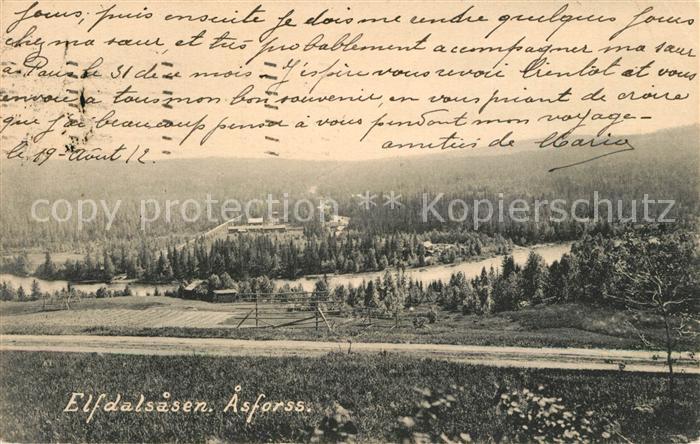 jours, puis ensuite je dois me rendre quelques jours
chez ma sœur, et très probablement accompagner ma sœur
à Paris le 31 de ce mois. J'espère vous revoir bientôt et vous
envoie à tous mon bon souvenir, en vous priant de croire
que j'ai beaucoup pensé à vous pendant mon voyage –
amitiés de Marie
le 19 - Août 12.
copyright protection *** Kopierschutz
Elfdalsåsen. Åsforss.